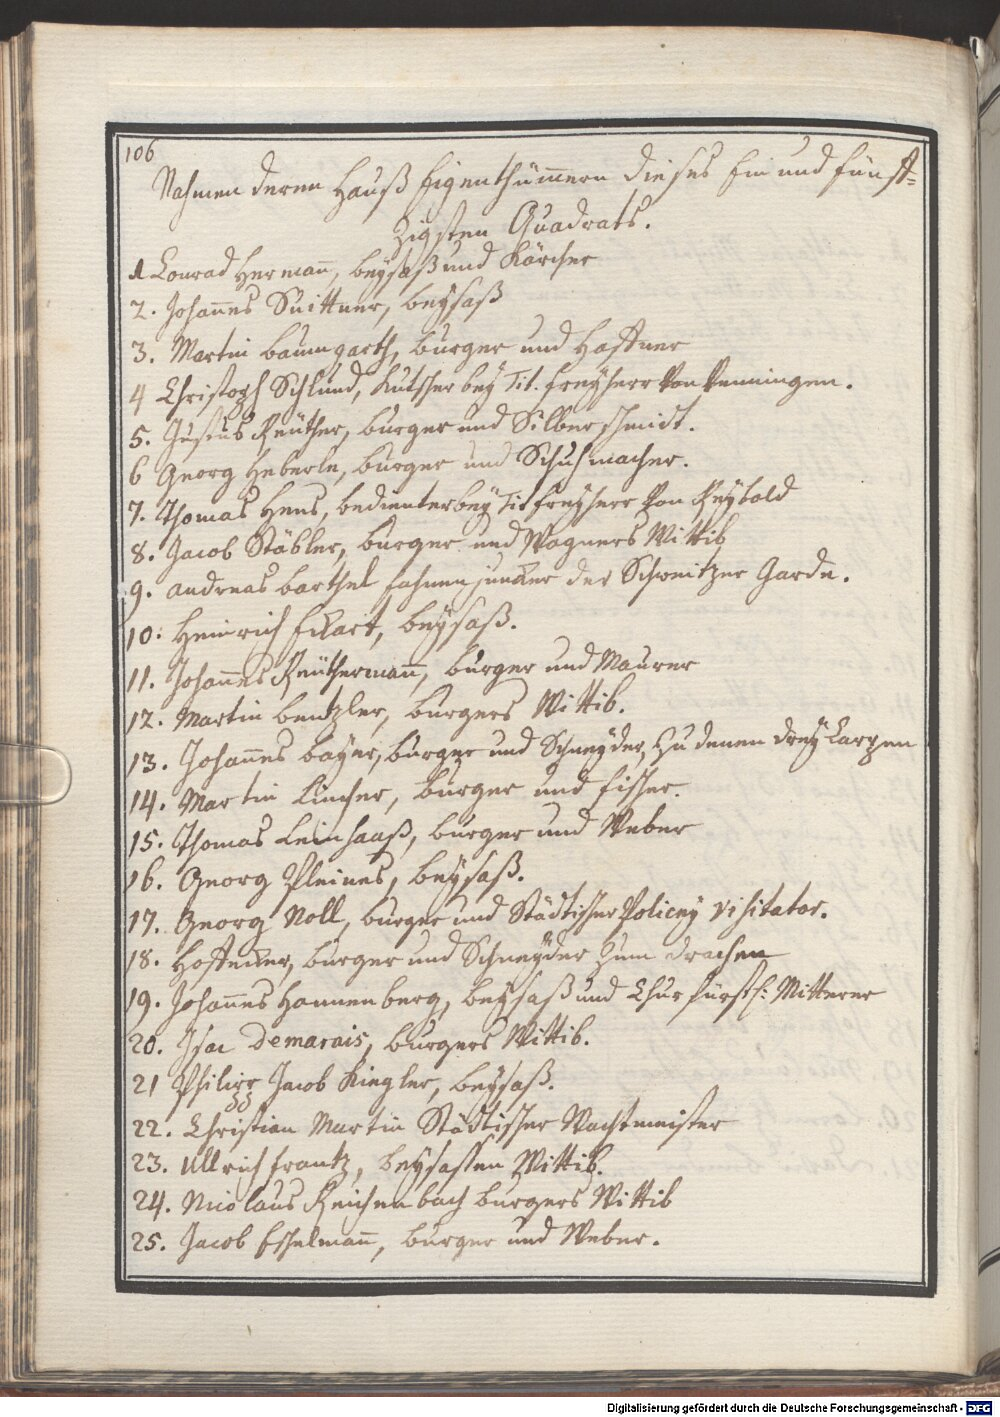 106
Nahmen deren Hauß Eigenthümmern dieses Ein und fünff=
Zigsten Quadrats.
1 Conrad Hermañ, beysaß und Kärcher
2. Johañes Suittner, beysaß
3. Martin baumgarth, burger und Haffner
4 Christoph Schlund, Kutscher bey Tit. freyherr Von Venningen.
5. Justus Reüther, burger und Silber schmidt.
6 Georg Heberle, burger und Schuhmacher.
7. Thomas Hens, bedienter bey Tit freyherr Von Reybold
8. Jacob Stäbler, burger und Wagners Wittib
9. andreas barthel fahnenjuncker der Schweitzer Garde.
10. Heinrich Eckart, beysaß.
11. Johañes Reüthermañ, burger und Maurer
12. Martin bentzler, burgers Wittib.
13. Johañes bayer, burger und Schneyder, zu denen drey Karpen
14. Martin Lincher, burger und fischer.
15. Thomas Leinhaaß, burger und Weber
16. Georg Pleines, beysaß.
17. Georg Noll, burger und Städtischer Policey Visitator.
18. Hoffecker, burger und Schneyder zum drachen
19. Johañes Hannenberg, beysaß und Churfürstl: Mitterer
20. Isac Demarais, burgers Wittib.
21 Philipp Jacob Kiegler, beysaß.
22. Christian Martin Städtischer Wachtmeister
23. Ullrich frantz, beysassen Wittib.
24. Nicolaus Reichenbach burgers Wittib
25. Jacob Eschelmañ, burger und Weber.
Digitalisierung gefördert durch die Deutsche Forschungsgemeinschaft - DFG